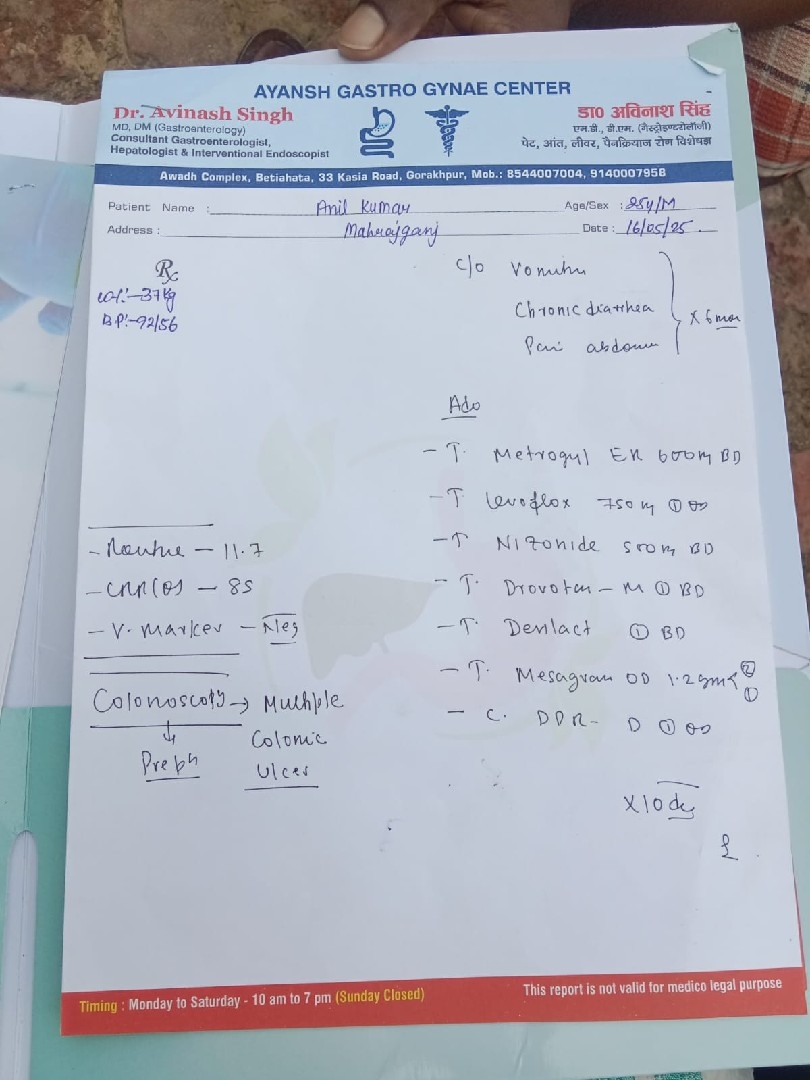 AYANSH GASTRO GYNAE CENTER
Dr. Avinash Singh
MD, DM (Gastroenterology)
Consultant Gastroenterologist,
Hepatologist & Interventional Endoscopist
डा० अविनाश सिंह
एम.डी., डी.एम. (गैस्ट्रोइण्टरोलॉजी)
पेट, आंत, लीवर, पैनक्रियाज रोग विशेषज्ञ
Awadh Complex, Betiahata, 33 Kasia Road, Gorakhpur, Mob.: 8544007004, 9140007958
Patient Name : Anil Kumar Age/Sex : 25y/M
Address : Maharajganj Date : 16/05/25
Rx
wt:-37kg
BP:-92/56
c/o Vomitin
Chronic diarrhea
Pain abdomen
X 6 mon
Adv
- T. Metrogyl ER 600 mg BD
- T Levoflox 750 mg ① OD
- T Nizonide 500 mg BD
- T. Drovotan - M ① BD
- T. Denlact ① BD
- T. Mesagran OD 1.2 gm ② ①
- C. DDR - D ① OD
X 10 day
- 11.7
- 85
- V. marker - Neg
Colonoscopy → Multiple
Colonic
Ulcer
Timing : Monday to Saturday - 10 am to 7 pm (Sunday Closed)
This report is not valid for medico legal purpose